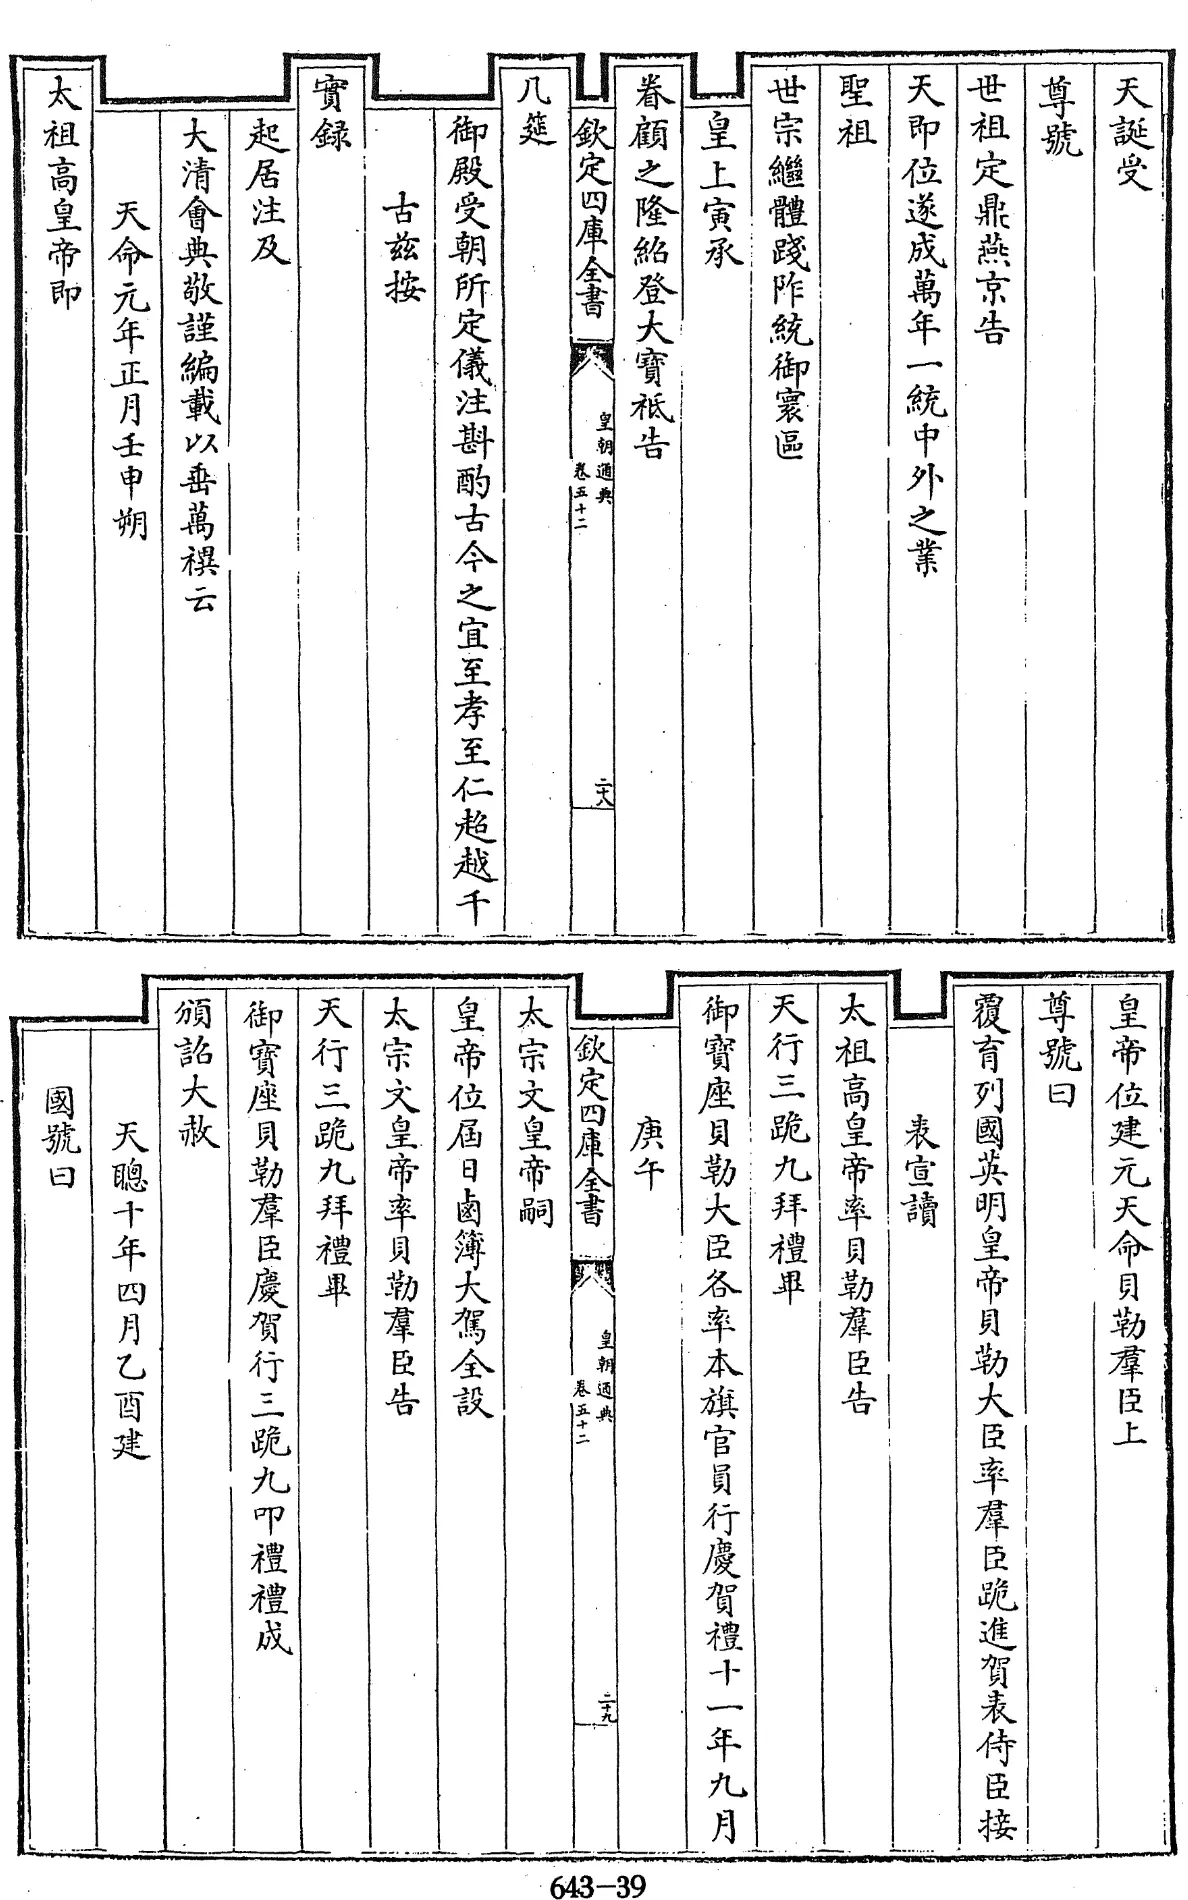 天誕受
尊號
世祖定鼎燕京告
天即位遂成萬年一統中外之業
聖祖
世宗繼體踐阼統御寰區
皇上寅承
眷顧之隆紹登大寶祗告
欽定四庫全書
皇朝通典
卷五十二
二十八
几筵
御殿受朝所定儀注斟酌古今之宜至孝至仁超越千
古兹按
實録
起居注及
大清會典敬謹編載以垂萬禩云
天命元年正月壬申朔
太祖高皇帝即
皇帝位建元天命貝勒羣臣上
尊號曰
覆育列國英明皇帝貝勒大臣率羣臣跪進賀表侍臣接
表宣讀
太祖高皇帝率貝勒羣臣告
天行三跪九拜禮畢
御寶座貝勒大臣各率本旗官員行慶賀禮十一年九月
庚午
欽定四庫全書
皇朝通典
卷五十二
二十九
太宗文皇帝嗣
皇帝位屆日鹵簿大駕全設
太宗文皇帝率貝勒羣臣告
天行三跪九拜禮畢
御寶座貝勒羣臣慶賀行三跪九叩禮禮成
頒詔大赦
天聰十年四月乙酉建
國號曰
643-39